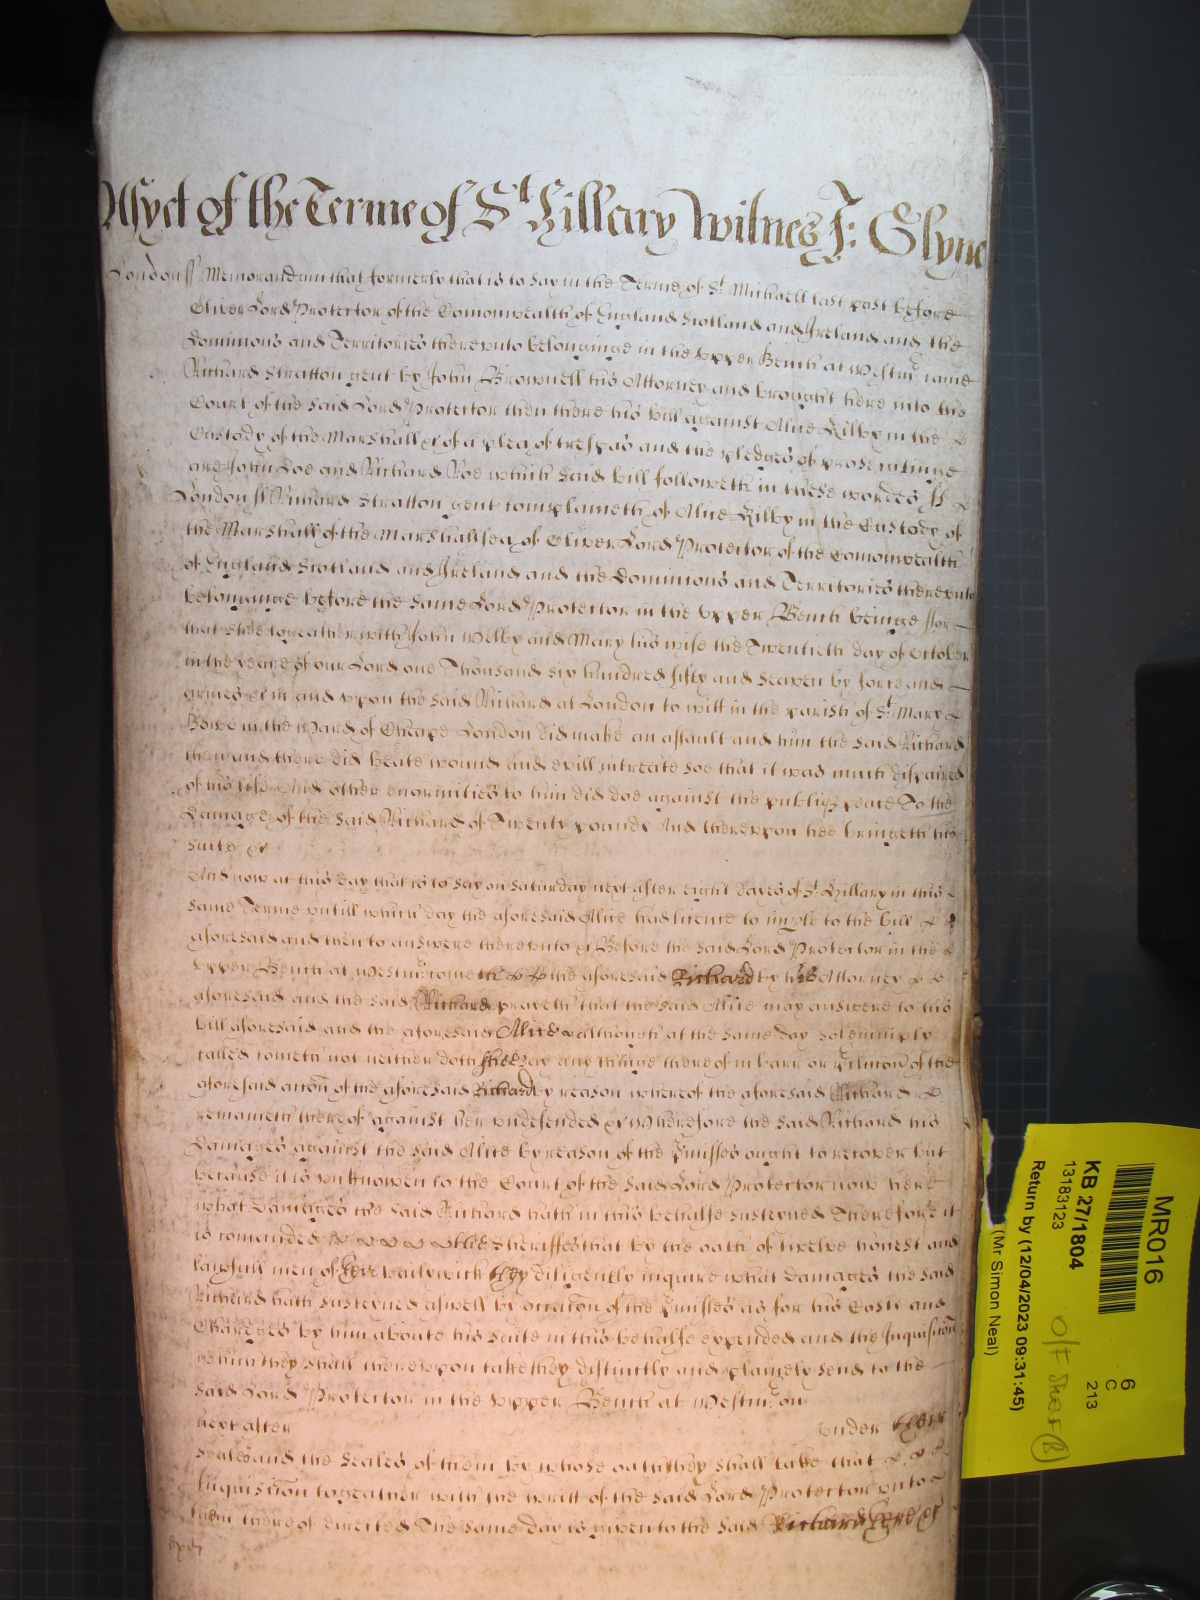 Asyet of the Terme of St Hillary Witnes J: Glyne
London ss Memorandum that formerly that is to say in the Terme of St Michaell last past before
Oliver Lord Protector of the Comonwealth of England Scotland and Ireland and the
Dominions and Territories thereunto belonginge in the upper Bench at Westmr came
Richard Stratton gent by John Brownell his Attorney and brought here into the
Court of the said Lord Protector then there his bill against Alice Kilby in the
Custody of the Marshall &c of a plea of trespas and the pledges of prosecutinge
are John Doe and Richard Roe which said bill followeth in these wordes ss
London ss Richard Stratton gent complaineth of Alice Kilby in the Custody of
the Marshall of the Marshallsea of Oliver Lord Protector of the Comonwealth
of England Scotland and Ireland and the Dominions and Territories thereunto
belonginge before the same Lord Protector in the upper Bench beinge ffor
that shee togeather with John Welby and Mary his wife the Twentieth day of October
in the yeare of our Lord one Thousand six hundred fifty and seaven by force and
armes &c in and upon the said Richard at London to witt in the parish of St Mary
Bowe in the Ward of Cheape London did make an assault and him the said Richard
then and there did beate wound and evill intreate soe that it was much dispaired
of his life And other enormities to him did doe against the publiq peace To the
damage of the said Richard of Twenty pounds And thereupon hee bringeth his
suite &c
And now at this day that is to say on Saturday next after eight dayes of St Hillary in this
same Terme untill which day the aforesaid Alice had licence to imple to the bill
aforesaid and then to answere thereunto &c Before the said Lord Protector in the
upper Bench at Westmr cometh the aforesaid Richard by his Attorney
aforesaid and the said Richard prayeth that the said Alice may answere to his
bill aforesaid and the aforesaid Alice although at the same day solemnply
called cometh not neither doth shee say any thinge thereof in barr or of the
aforesaid accon of the aforesaid Richard by reason whereof the aforesaid Richard
remaineth thereof against her undefended &c Wherefore the said Richard his
damages against the said Alice by reason of the Pmisses ought to recover but
because it is unknowen to the Court of the said Lord Protector now here
what damages the said Richard hath in this behalfe susteyned Therefore it
is comanded the Sheriffes that by the oath of twelve honest and
lawfull men of their bailywick they diligently inquire what damages the said
Richard hath susteyned aswell by occacion of the Pmisses as for his Costs and
Chardges by him aboute his suite in this behalfe expended and the Inquisicon
which they shall thereupon take they distinctly and plainely send to the
said Lord Protector in the upper Bench at Westmr on
next after under their
Seales and the Seales of them by whose oath they shall take that
Inquisicon togeather with the writt of the said Lord Protector unto
them thereof directed The same day is given to the said Richard here &c
MR016
KB 27/1804
13183123
Return by (12/04/2023 09:31:45)
(Mr Simon Neal)
6
C
213
O/F Sheaf B